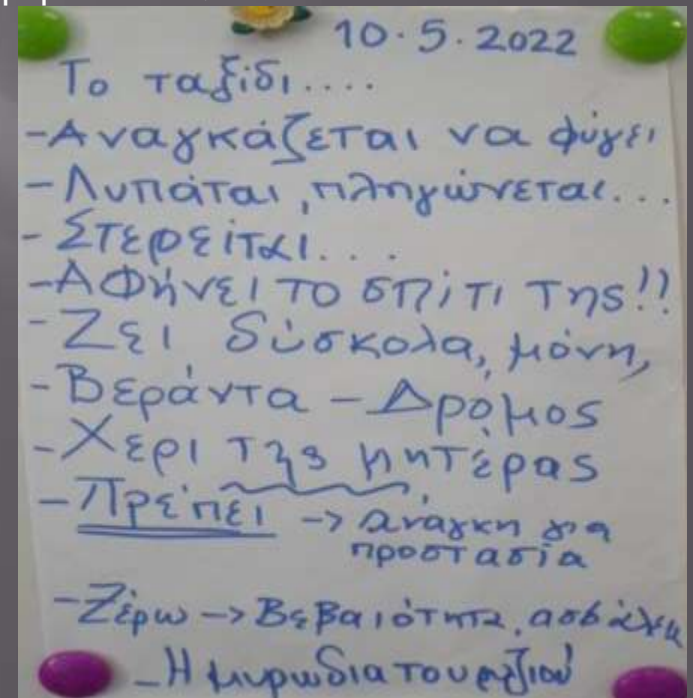 10.5.2022
Το ταξίδι....
-Αναγκάζεται να φύγει
-Λυπάται, πληγώνεται...
-Στερείται...
-Αφήνει το σπίτι της!!
-Ζει δύσκολα, μόνη,
-Βεράντα - Δρόμος
-Χέρι της μητέρας
-Πρέπει -> ανάγκη για
προστασία
-Ξέρω -> Βεβαιότητα, ασφάλεια
-Η μυρωδιά του